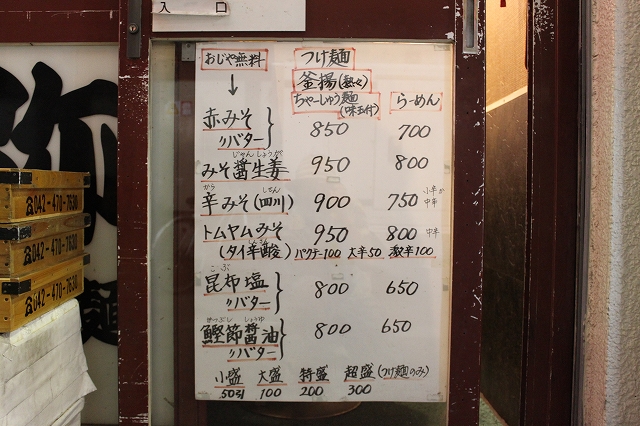 入口
おじや無料
つけ麺
釜揚(熱々)
ちゃーしゅう麺
(味玉付)
らーめん
赤みそ
〃バター
850
700
じゃんしょうが
みそ醤生姜
950
800
から しせん
辛みそ(四川)
900
750
小辛か
中辛
トムヤムみそ
950
800
中辛
(タイ辛酸)
パクチー100 大辛50 激辛100
こぶ
昆布塩
〃バター
800
650
かつぶし しょうゆ
鰹節醤油
〃バター
800
650
小盛 大盛 特盛 超盛(つけ麺のみ)
50引 100 200 300
☎042-470-7630
☎042-470-7630
☎042-470-7630
麺